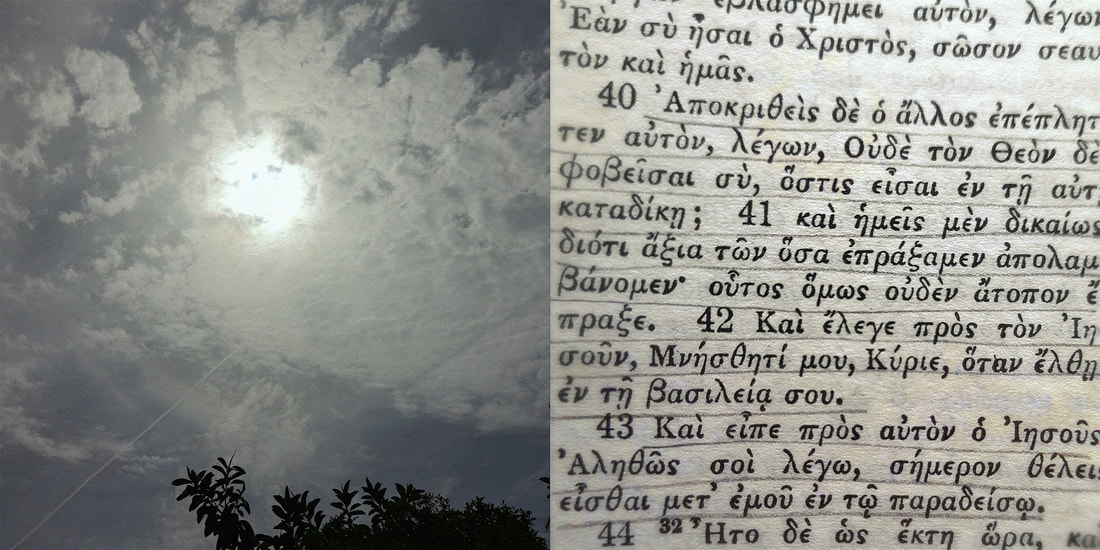 ἐβλασφήμει αὐτὸν,
Ἐὰν σὺ ἦσαι ὁ Χριστὸς, σῶσον σεαυ
τὸν καὶ ἡμᾶς.
40 Ἀποκριθεὶς δὲ ὁ ἄλλος ἐπέπλητ
τεν αὐτὸν, λέγων, Οὐδὲ τὸν Θεὸν δὲ
φοβεῖσαι σὺ, ὅστις εἶσαι ἐν τῇ αὐτ
καταδίκῃ; 41 καὶ ἡμεῖς μὲν δικαίως
διότι ἄξια τῶν ὅσα ἐπράξαμεν ἀπολαμ
βάνομεν· οὗτος ὅμως οὐδὲν ἄτοπον ἔ
πραξε. 42 Καὶ ἔλεγε πρὸς τὸν Ἰη
σοῦν, Μνήσθητί μου, Κύριε, ὅταν ἔλθῃ
ἐν τῇ βασιλείᾳ σου.
43 Καὶ εἶπε πρὸς αὐτὸν ὁ Ἰησοῦς
Ἀληθῶς σοὶ λέγω, σήμερον θέλει
εἶσθαι μετ' ἐμοῦ ἐν τῷ παραδείσῳ.
44 32 Ἦτο δὲ ὡς ἕκτη ὥρα, κα